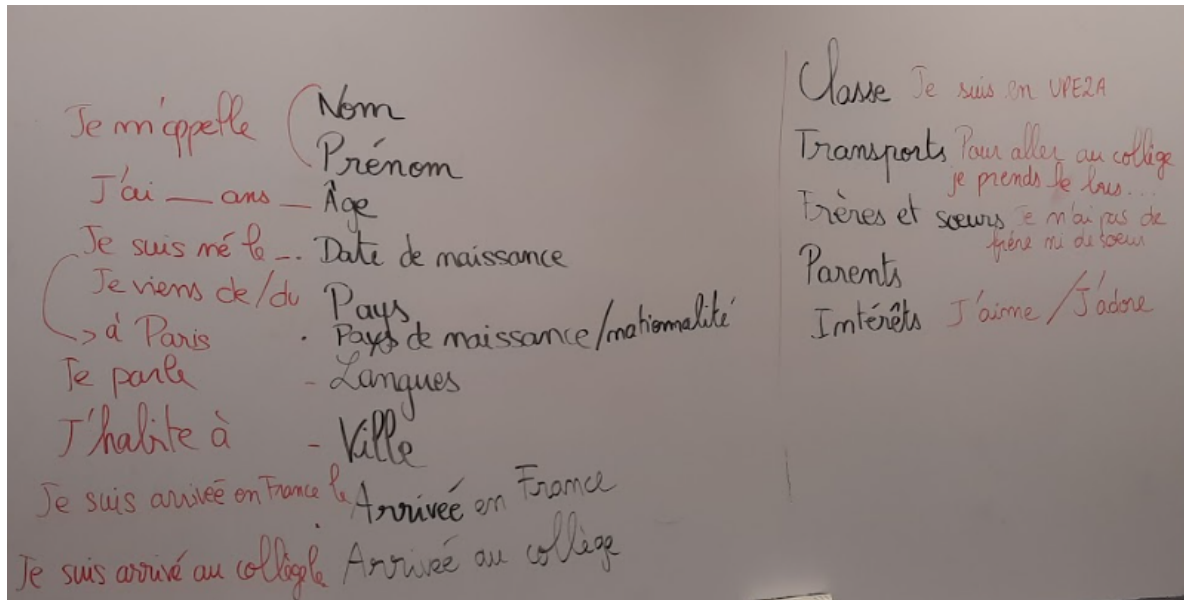 Je m'appelle Nom
Prénom
J'ai __ ans _ Âge
Je suis né le _.. Date de naissance
Je viens de/du Pays
-> à Paris . Pays de naissance/nationnalité
Je parle - Langues
J'habite à - Ville
Je suis arrivéé en France le Arrivéé en France
Je suis arrivé au collège le Arrivéé au collège
Classe Je suis en UPE2A
Transports Pour aller au collège
je prends le bus...
Frères et sœurs Je n'ai pas de
frère ni de soeur
Parents
Intérêts J'aime / J'adore